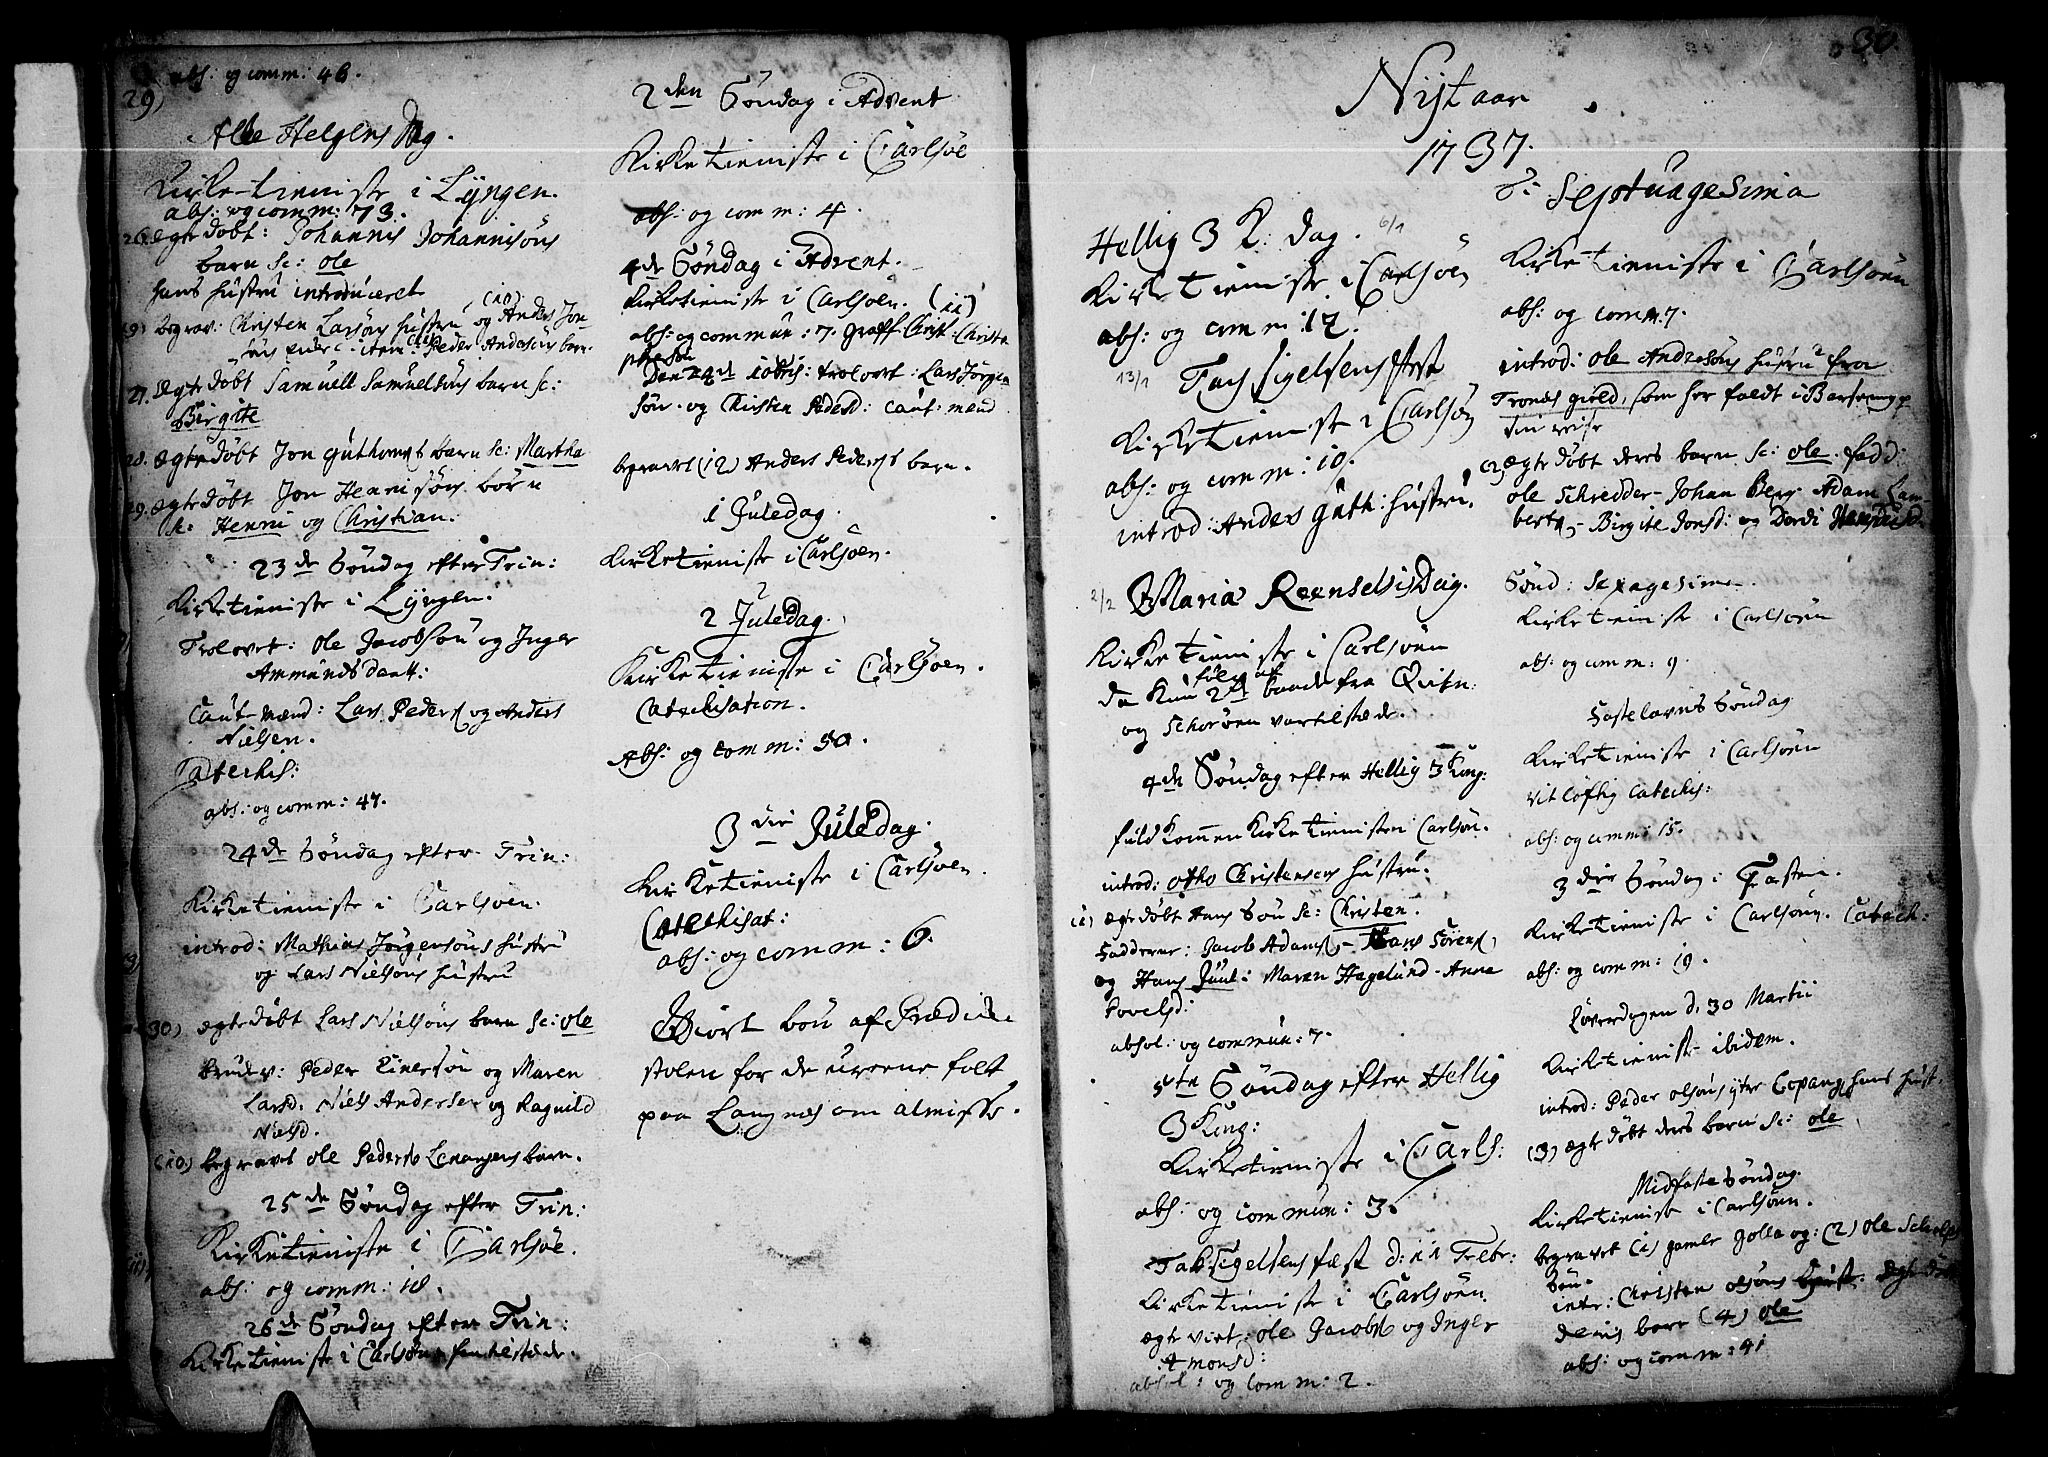 29)
abs: og comm: 46.
Alle Helgens Dag.
Kirke-tieniste i Lyngen.
abs: og comm: 73.
26. ægte døbt: Johannis Johannisöns
barn sc: ole
hans hustru introduceret
(10)
29) begrav: Christen Larsöns hustru og Anders Jon-
söns item: Peder Andersöns barn.
27. ægte døbt Samuell Samuelsöns barn sc:
Birgite
28. ægte døbt Jon Guthorms barn sc: Martha
29. ægte døbt Jon Henrisöns börn
sc: Henric og Christian.
23de Söndag efter Trin:
Kirketieniste i Lyngen.
Trolovet: Ole Jacobsön og Inger
Ammunds datt:
Caut-mænd: Lars Peders og Anders
Nielsen.
Catechis:
abs: og comm: 47.
24de Söndag efter Trin:
Kirketieniste i Carlsöen.
introd: Mathias Jörgensöns hustru
og Lars Nielsöns hustru
30) ægte døbt Lars Nielsöns barn sc: ole
brudev: Peder Einersön og Maren
Larsd. Niels Andersen og Ragnild
Nielsd.
(10) begravet ole Peders Lenangens barn.
25de Söndag efter Trin:
Kirketieniste i Carlsöe.
abs: og comm: 10.
26de Söndag efter Trin:
Kirketieniste i Carlsöen
2den Söndag i Advent
Kirketieniste i Carlsöe
abs: og comm: 4.
4de Söndag i Advent.
Kirketieniste i Carlsöen. (11)
abs: og commun: 7. Christ: Christo
phersön
Den 24de Xbris: trolovet: Lars Jörgen
sön og Christen Pedersd: caut: mend
begravet (12) Anders Peders barn.
1 Juledag.
Kirketieniste i Carlsöen.
2 Juledag.
Kirketieniste i Carlsöen.
Catechisation.
Abs: og comm: 50.
3die Juledag.
Kirketieniste i Carlsöen.
Catechisat:
abs: og comm: 6.
Giort bön af Prædicke
stolen for de arme folk
paa Langnes om almisse.
30.
Nyt aar
1737.
Hellig 3 K: dag. 6/1
Kirketieniste i Carlsöen
abs: og comm: 12.
13/1 Tacksigelsens fest
Kirketieniste i Carlsöen
abs: og comm: 10.
introd: Anders Guth: hustru.
2/2 Maria Reenselsis Dag.
Kirketieniste i Carlsöen
da kun 2de baade folk af fra Qvitn:
og Schorøen var tilstæde.
4de Söndag efter Hellig 3 King:
fuldkommen Kirketieniste i Carlsön.
introd: Otho Christensens hustru.
(1) ægte døbt hans sön sc: Christen.
Fadderne: Jacob Adams - Hans Sörens
og Hans Juul: Maren Hagelund - Anna
Povelsd:
absol: og commun: 7.
5te Söndag efter Hellig
3 King:
Kirketieniste i Carls:
abs: og commun: 3.
Taksigelsens fæst d: 11 Febr:
Kirketieniste i Carlsöen
ægte viet: ole Jacobs og Inger
Amonsd:
absol: og comm: 2.
d: Septuagesima
Kirketieniste i Carlsöen
abs: og comm. 7.
introd: Ole Andresöns hustru fra
Tronesgield, som her faldt i Barselng paa
sin reise
(2) ægte døbt deres barn sc: ole. fadd:
ole Schredder - Johan Berg. Adam Lam-
berts - Birgite Jonsd: og Dordi
Sönd: Sexagesima.
Kirketieniste i Carlsöen
abs: og comm: 9.
Fastelavns Söndag
Kirketieniste i Carlsöen
vitløftig Catechis:
abs: og comm: 15.
3die Söndag i Fasten.
Kirketieniste i Carlsöen. Catech:
abs: og comm: 19.
Løverdagen d. 30 Martii
Kirketieniste ibidem.
introd: Peder olsöns ytre Copang hans hust.
(3) ægte døbt deres barn sc: ole
Midfaste Söndag.
Kirketieniste i Carlsöen.
begravet (1) gamle Jolla og: (2) ole
sön.
intr: Christen olsöns hust. ægte døbt
deris barn (4) ole
abs: og comm: 41